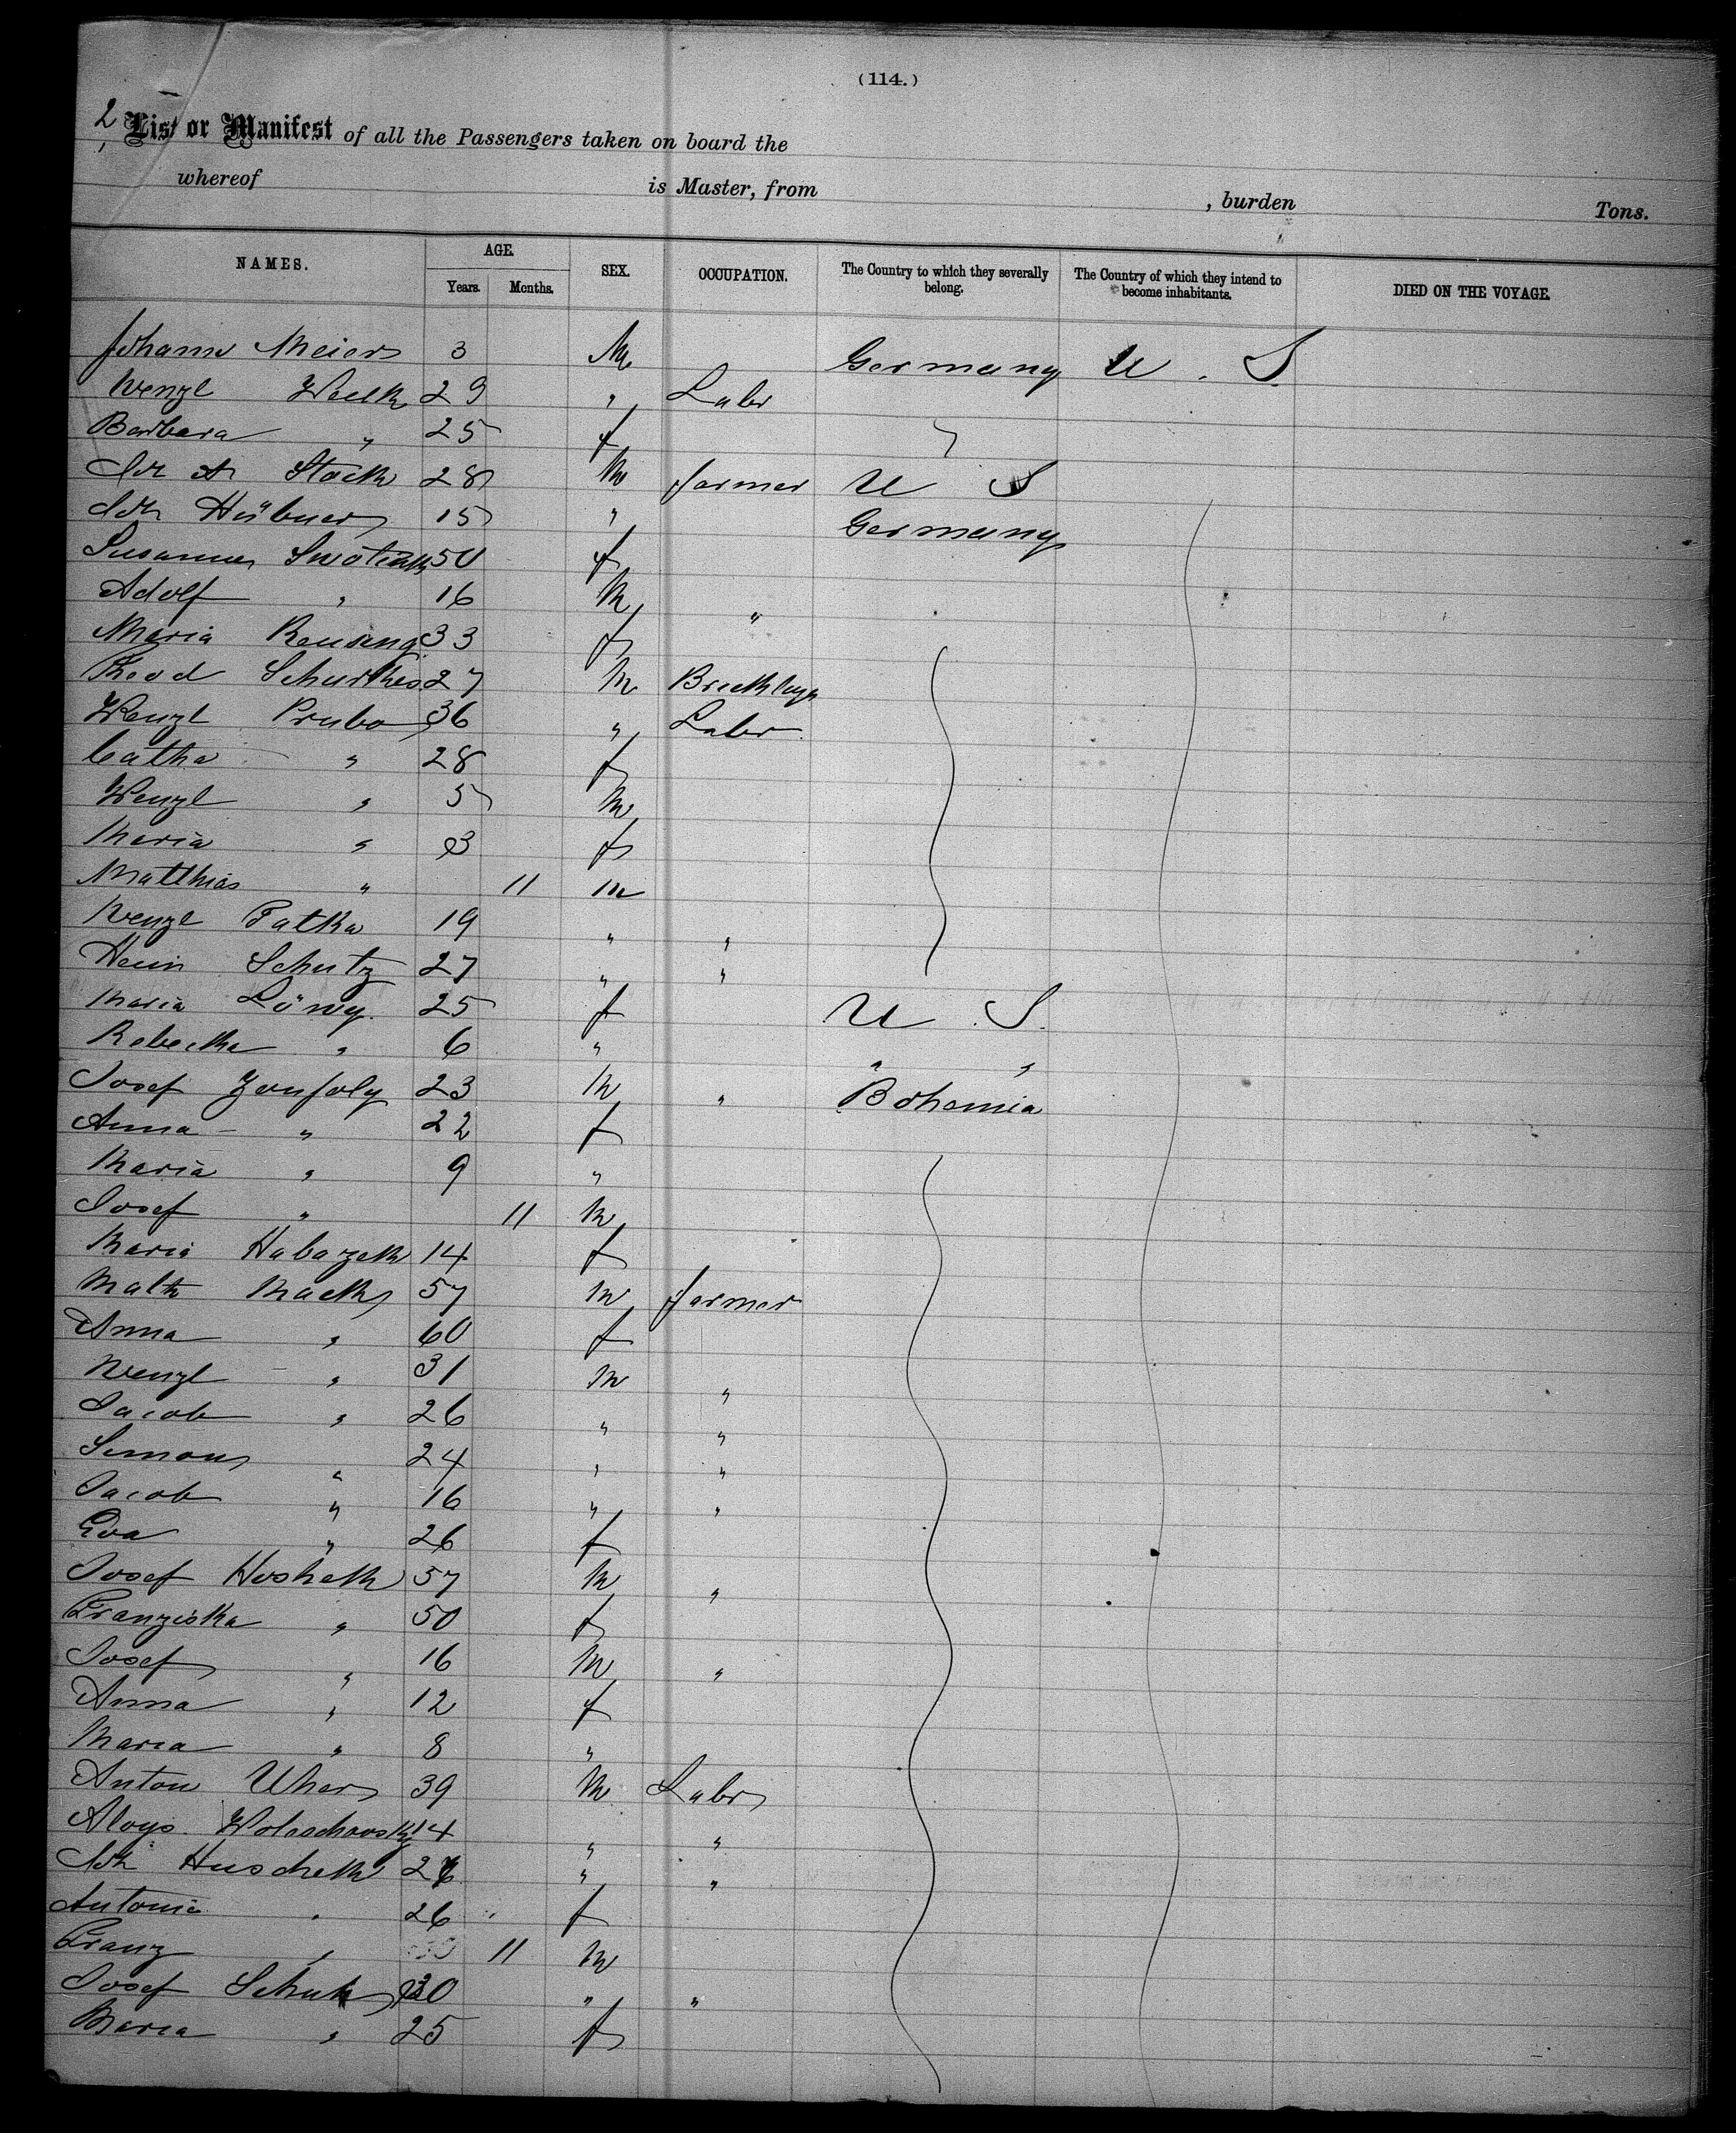 (114.)
2, List or Manifest of all the Passengers taken on board the
whereof is Master, from , burden Tons.
NAMES. AGE. SEX. OCCUPATION. The Country to which they severally belong. The Country of which they intend to become inhabitants. DIED ON THE VOYAGE.
Years. Months.
Johann Meier 3 M Germany U. S.
Wenzl 29 " Labr
Barbara " 25 f "
Joh A Stock 28 M farmer U S
Joh Hübner 15 " Germany
Susanna 50 f
Adolf " 16 M "
Maria Reusing 33 f
Theod 27 M
Wenzl Prubo 36 " Labr
Catha " 28 f
Wenzl " 5 M
Maria " 3 f
Matthias " 11 m
Wenzl Patka 19 " "
Hein Schutz 27 " "
Maria Löwy. 25 f U. S.
Rebecka " 6 " " "
Josef 23 M " Bohemia
Anna " 22 f
Maria " 9 "
Josef " 11 M
Maria Habazek 14 f
Math Mack 57 M farmer
Anna " 60 f
Wenzl " 31 M "
Jacob " 26 " "
Simon " 24 " "
Jacob " 16 " "
Eva " 26 f
Josef Hoshek 57 M "
Franziska " 50 f
Josef " 16 M "
Anna " 12 f
Maria " 8 "
Anton Uher 39 M Labr
Aloys 14 " "
Joh Huschek 26 " "
Antonia " 26 f
Franz " 11 M
Josef 30 " "
Maria " 25 f